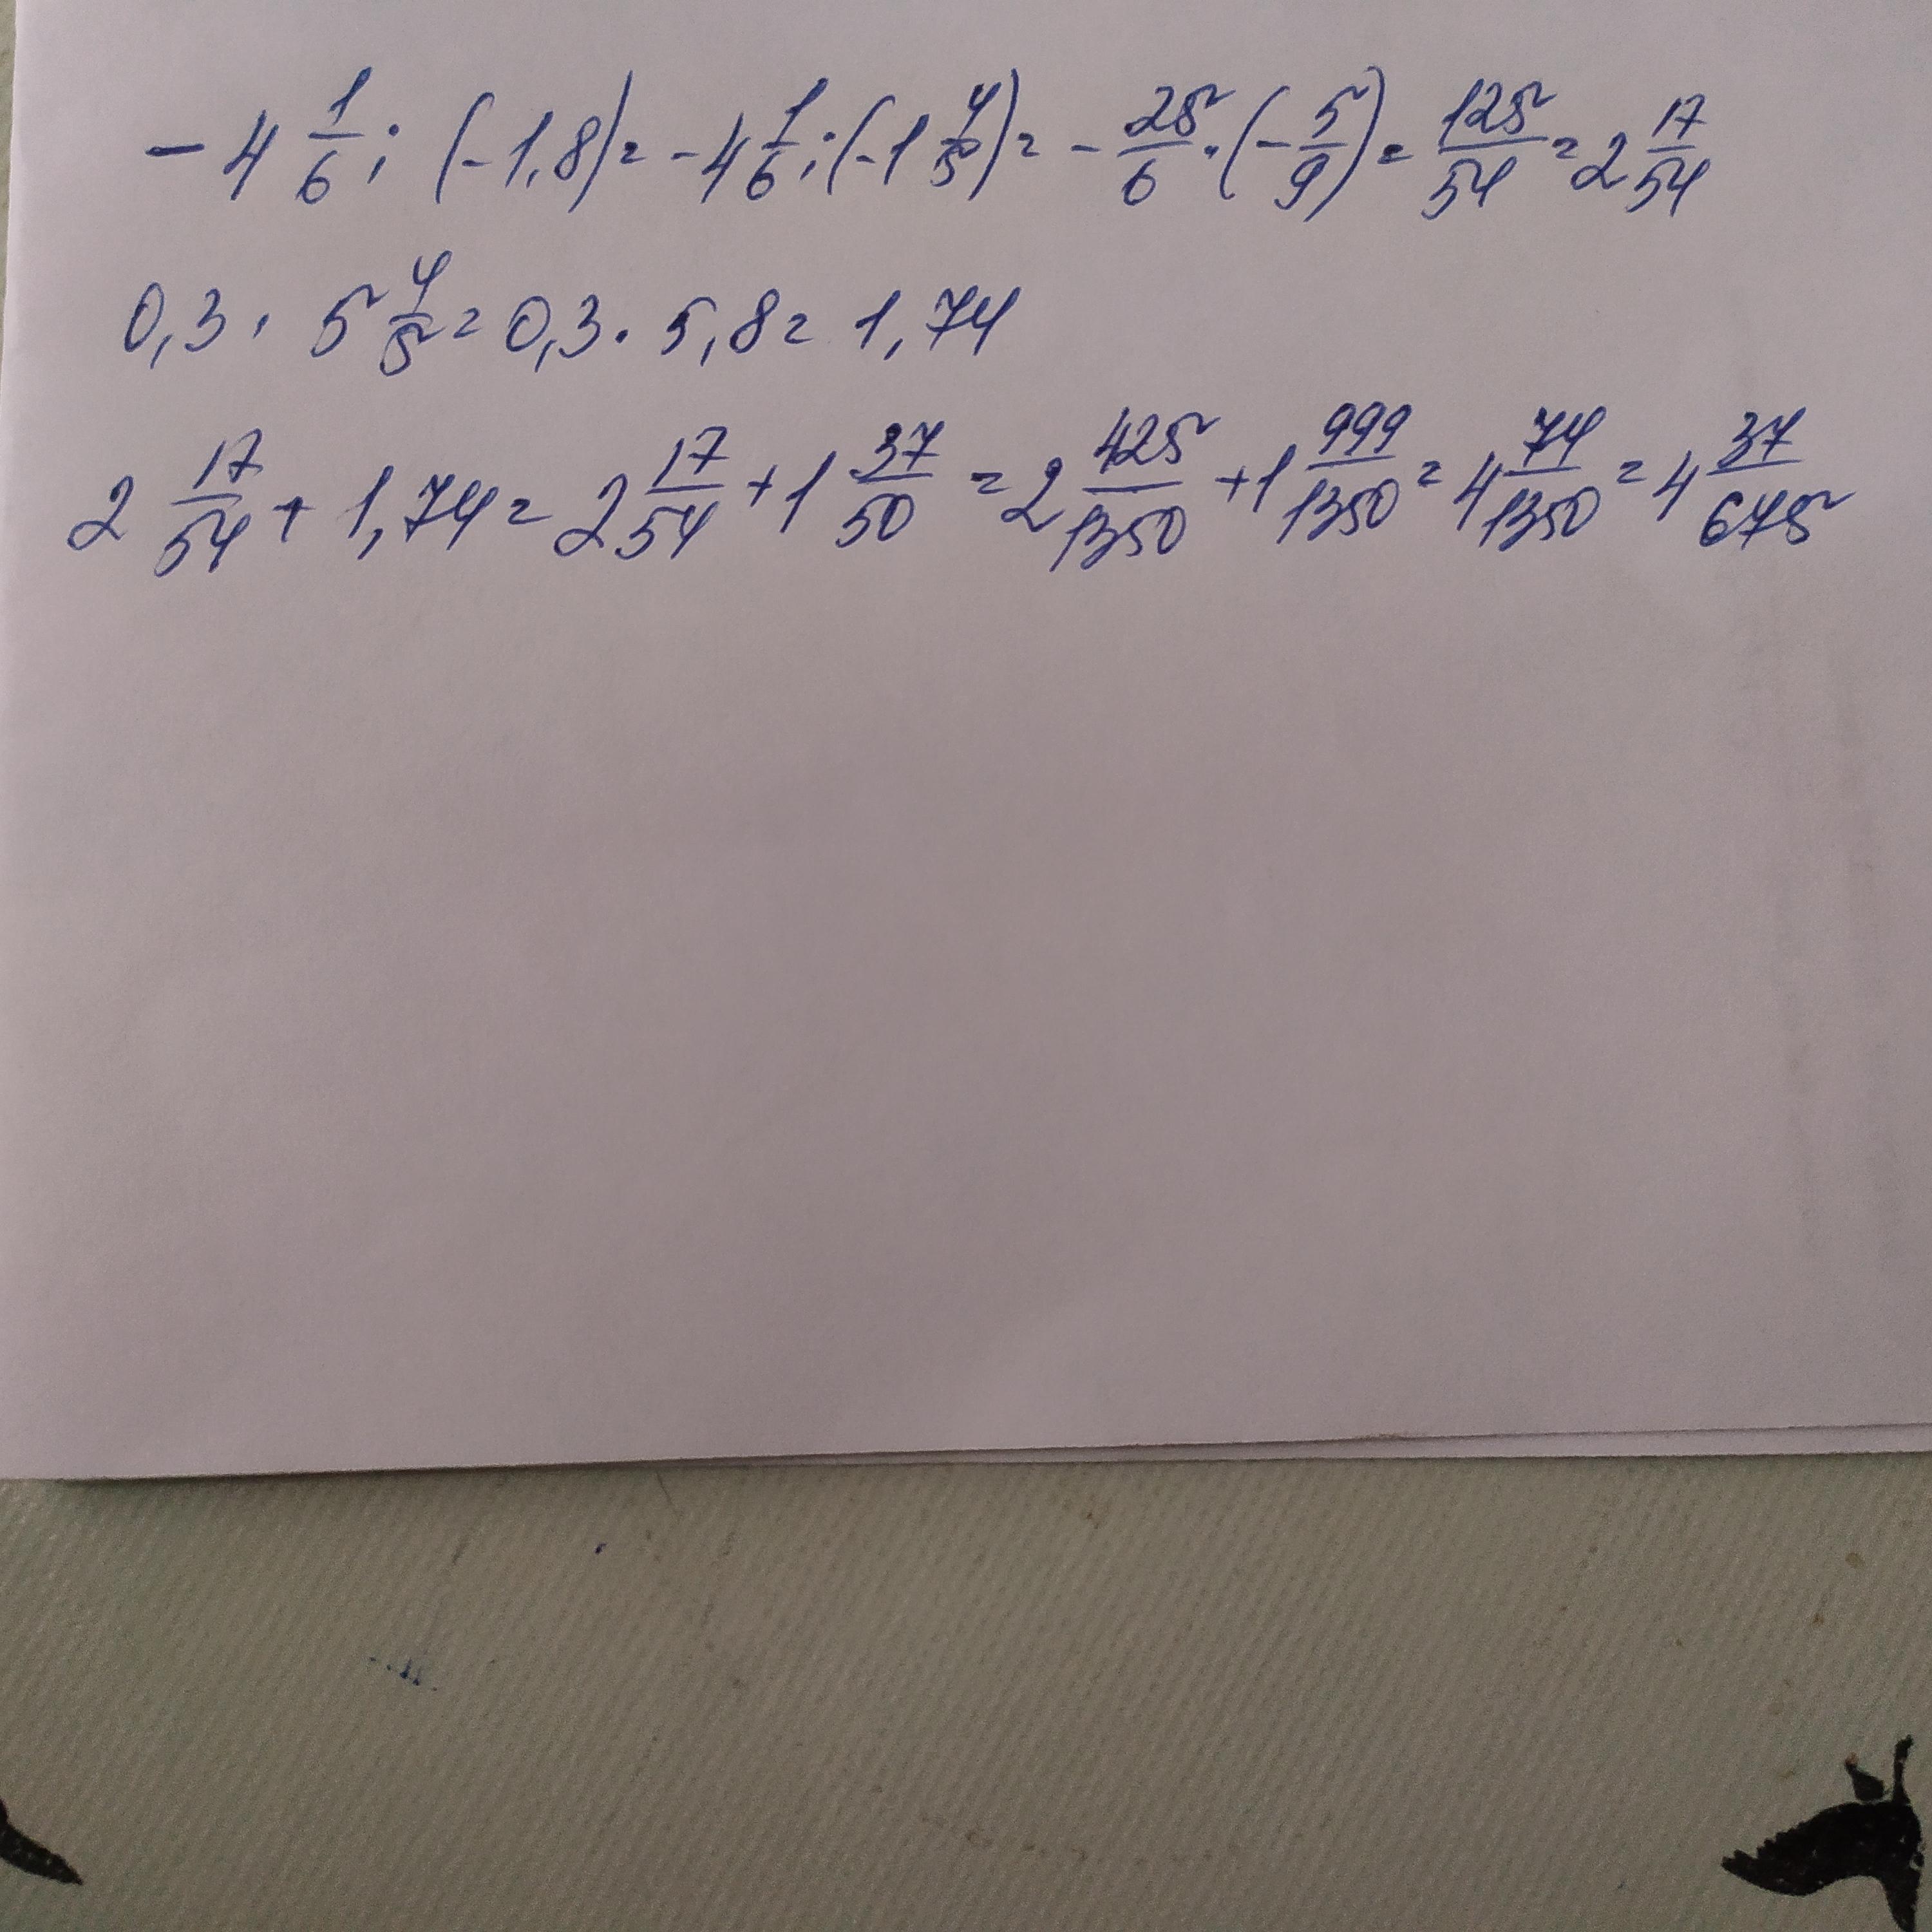 - 4 1/6 : (-1,8) = -4 1/6 : (-1 4/5) = - 25/6 · (- 5/9) = 125/54 = 2 17/54
0,3 · 5 4/5 = 0,3 · 5,8 = 1,74
2 17/54 + 1,74 = 2 17/54 + 1 37/50 = 2 425/1350 + 1 999/1350 = 4 74/1350 = 4 37/675